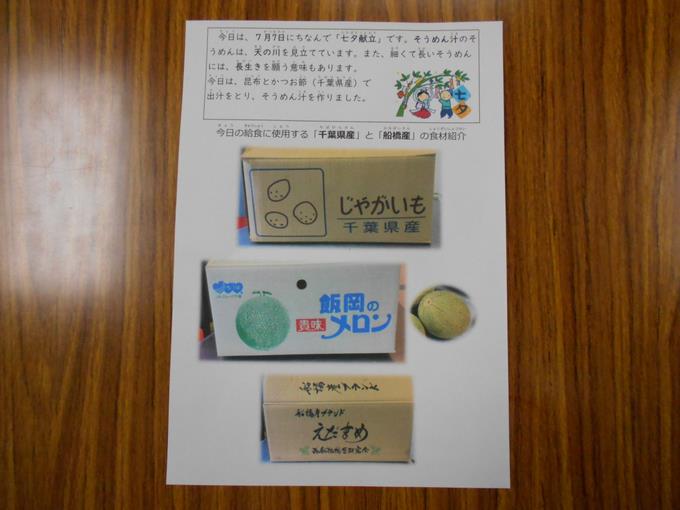 今日は、7月7日にちなんで「七夕献立」です。そうめん汁のそ
うめんは、天の川を見立てています。また、細くて長いそうめん
には、長生きを願う意味もあります。
今日は、昆布とかつお節（千葉県産）で
出汁をとり、そうめん汁を作りました。
七夕
今日の給食に使用する「千葉県産」と「船橋産」の食材紹介
じゃがいも
千葉県産
飯岡の
貴味
メロン
船橋産ブランド
船橋産ブランド
えだまめ